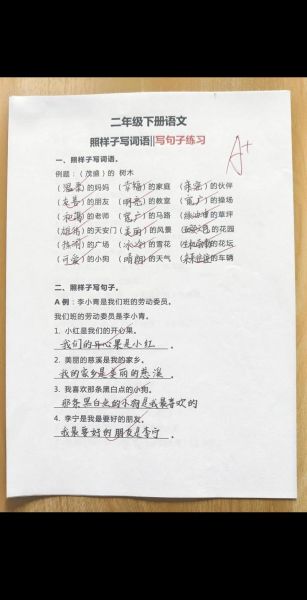 二年级下册语文
照样子写词语||写句子练习
A+
一、照样子写词语。
例题：（茂盛）的 树木
（温柔）的妈妈 （幸福）的家庭 （亲密）的伙伴
（友善）的朋友 （明亮）的教室 （宽广）的操场
（和蔼）的老师 （宽广）的马路 （绿油油）的草坪
（雄伟）的天安门 （美丽）的风景 （）的花园
（热闹）的广场 （）的雪花 （）的花坛
（可爱）的小狗 （晴朗）的天气 （来来往往）的车辆
二、照样子写句子。
A 例：李小青是我们班的劳动委员。
我们班的劳动委员是李小青。
1. 小红是我们的开心果。
我们的开心果是小红。
2. 美丽的慈溪是我的家乡。
我的家乡是美丽的慈溪。
3. 我喜欢那条黑白点的小狗。
那条黑白点的小狗是我最喜欢的
4. 李宁是我最要好的朋友。
我最要好的朋友是李宁。